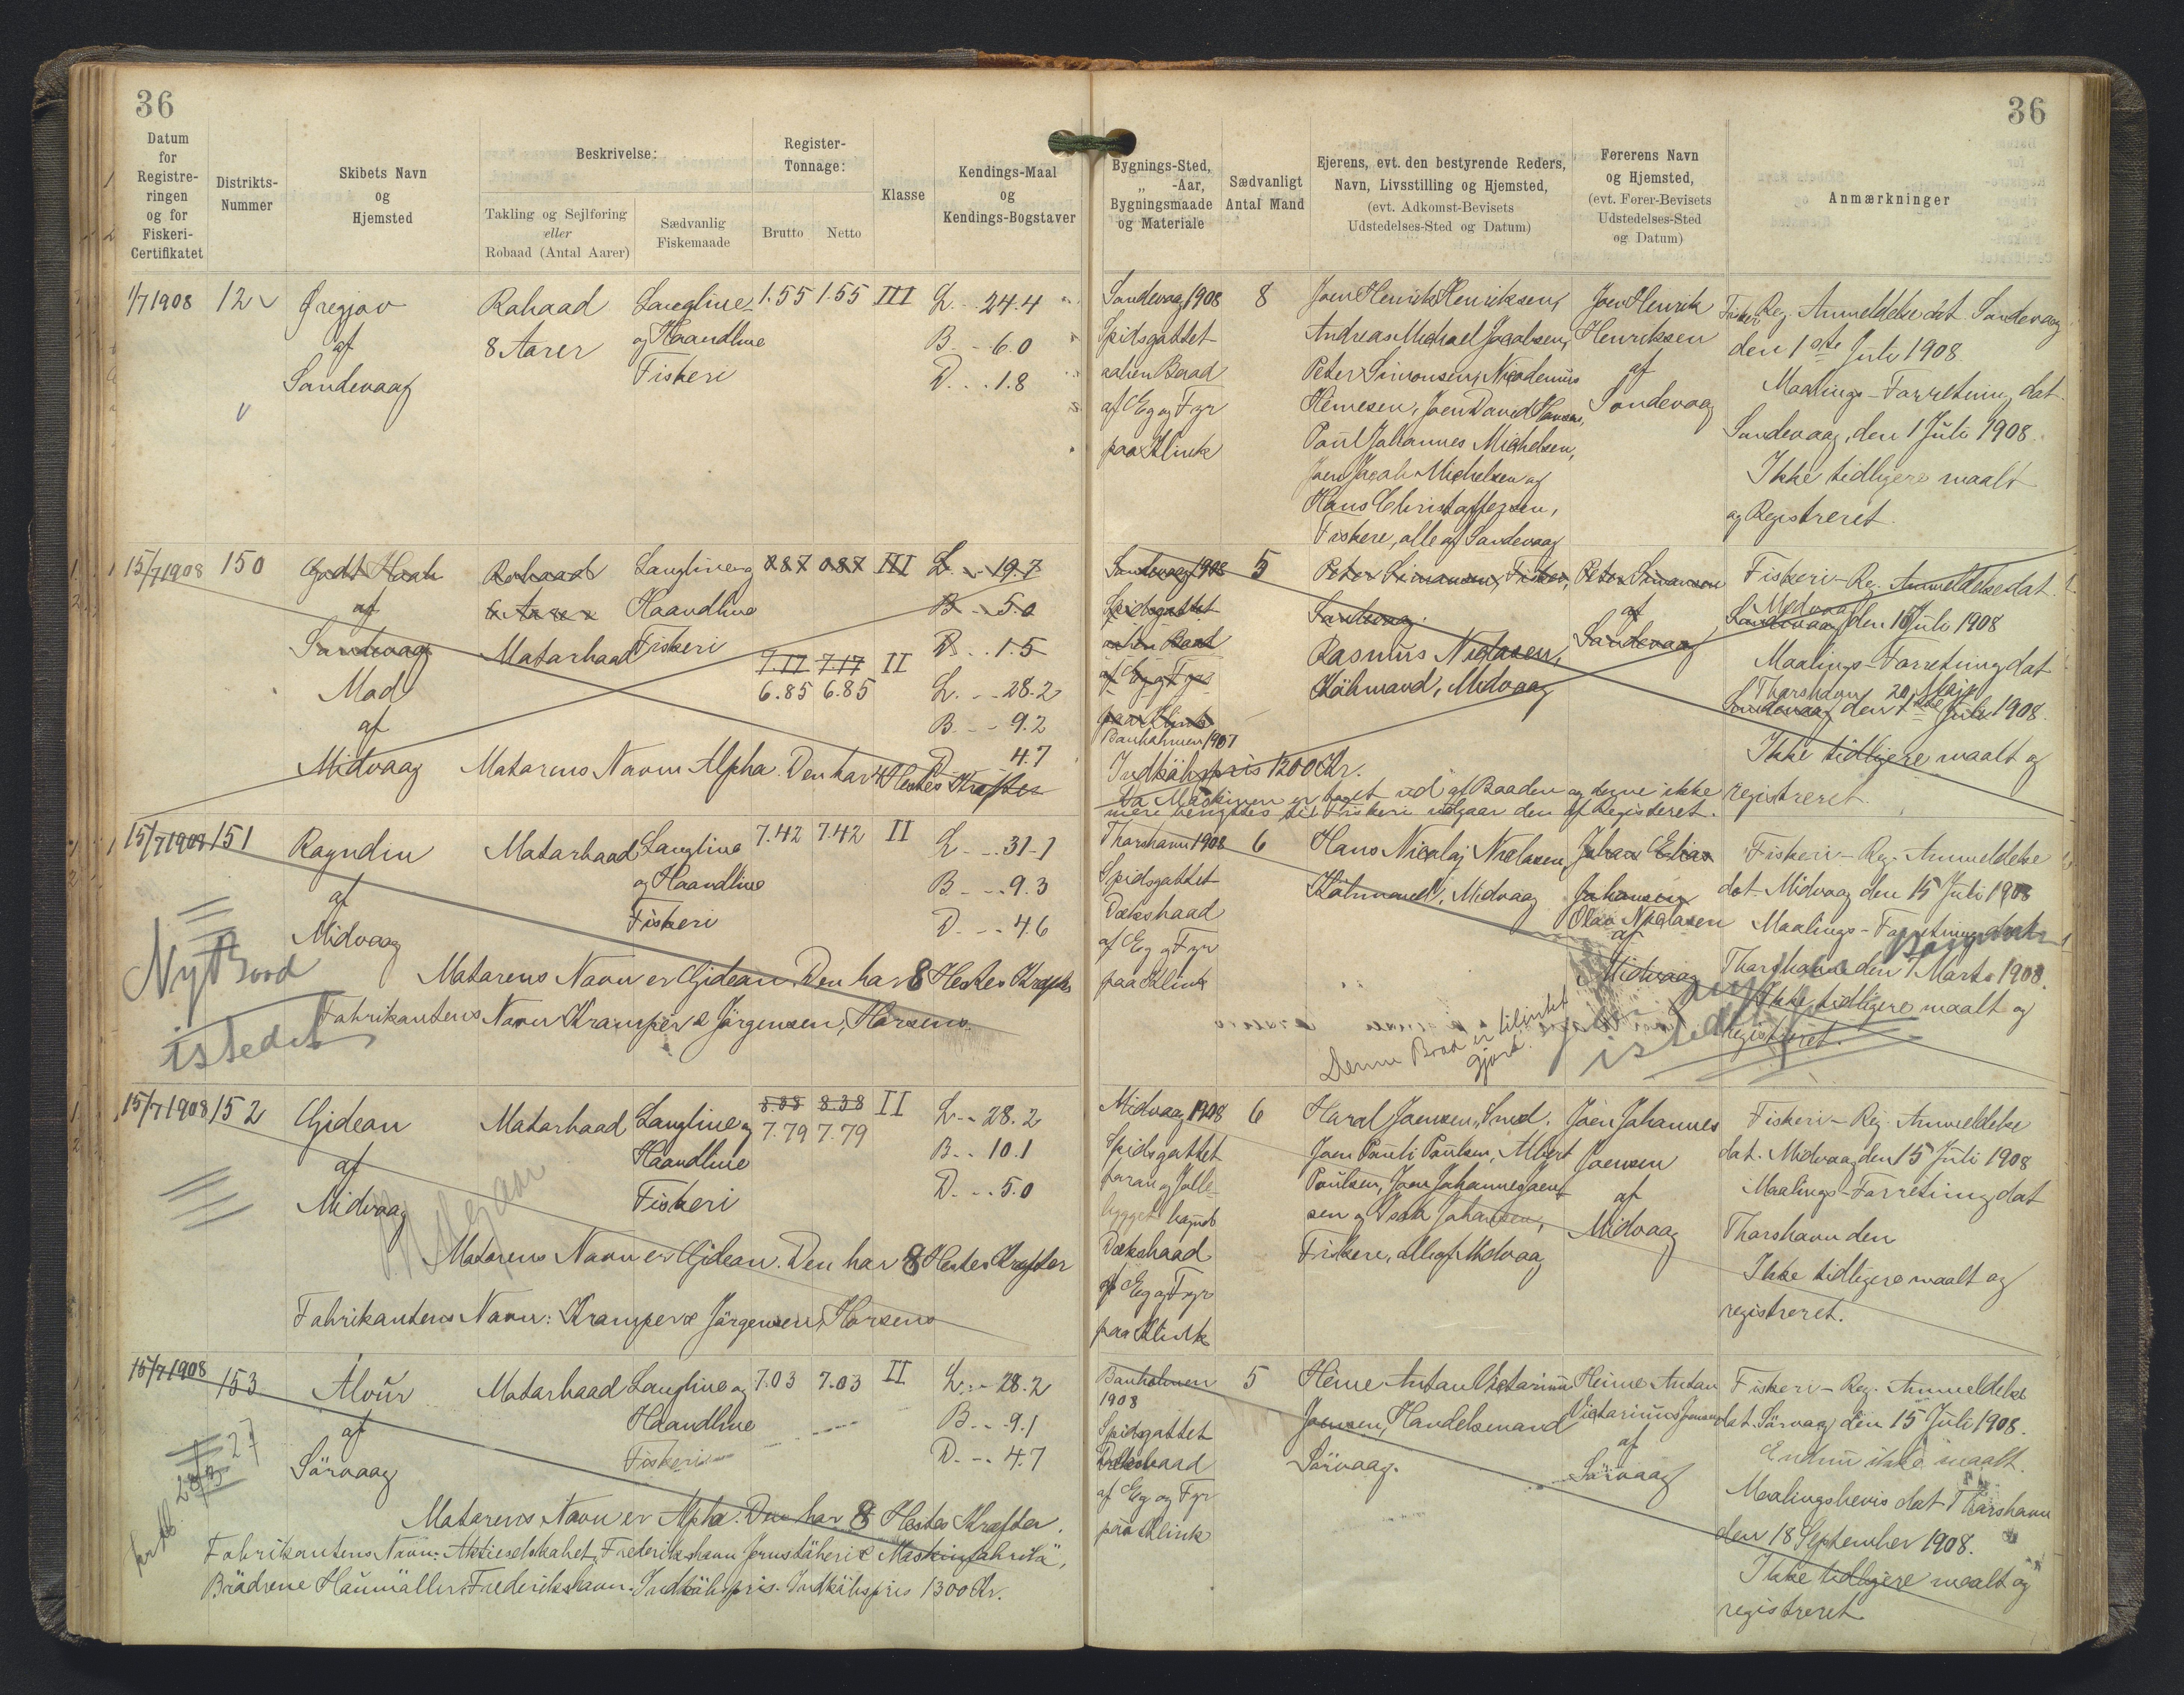 36
36
Datum
for
Registre-
ringen
og for
Fiskeri-
Certifikatet
Distrikts-
Nummer
Skibets Navn
og
Hjemsted
Beskrivelse:
Takling og Sejlføring
eller
Robaad (Antal Aarer)
Sædvanlig
Fiskemaade
Register-
Tonnage:
Brutto
Netto
Klasse
Kendings-Maal
og
Kendings-Bogstaver
Bygnings-Sted,
„ -Aar,
Bygningsmaade
og Materiale
Sædvanligt
Antal Mand
Ejerens, evt. den bestyrende Reders,
Navn, Livsstilling og Hjemsted,
(evt. Adkomst-Bevisets
Udstedelses-Sted og Datum)
Førerens Navn
og Hjemsted,
(evt. Fører-Bevisets
Udstedelses-Sted
og Datum)
Anmærkninger
1/7 1908
12
Øregjov
af
Sandevaag
Robaad
8 Aarer
Langline
og Haandline
Fiskeri
1.55 1.55 III
L. .. 24.4
B. .. 6.0
D. .. 1.8
Sandevaag 1908
Spidsgattet
aaben Baad
af Eg og Fyr
paa Klink
8
Joen Henrik Henriksen,
Andreas Michael Jacobsen,
Peter Simonsen, Nicodemus
Hemesen, Joen David Hansen,
Poul Johannes Michelsen,
Joen Jacob Michelsen og
Hans Christoffersen,
Fiskere, alle af Sandevaag
Joen Henrik
Henriksen
af
Sandevaag
Fiskeri Reg. Anmeldelse dat. Sandevaag
den 1ste Juli 1908.
Maalings-Forretning dat.
Sandevaag, den 1 Juli 1908.
Ikke tidligere maalt
og Registreret.
15/7 1908
150
Godt Haab
af
Sandevaag
Mod
af
Midvaag
Robaad
6 Aarer
Motorbaad
Langline og
Haandline
Fiskeri
0.87 0.87 III
7.17 7.17 II
6.85 6.85
L. .. 19.7
B. .. 5.0
D. .. 1.5
L. .. 28.2
B. .. 9.2
D. 4.7
Motorens Navn Alpha. Den har 4 Hestes Kræfter
Sandevaag 1908
Spidsgattet
aaben Baad
af Eg og Fyr
paa Klink
Banholmen 1907
Indkøbspris 1200 Kr.
5
Peter Simonsen, Fisker,
Sandevaag.
Rasmus Niclasen,
Købmand, Midvaag
Peter Simonsen
af
Sandevaag
Fiskeri-Reg. Anmeldelse dat.
Midvaag
Sandevaag den 15 Juli 1908
Maalings-Forretning dat
Thorshavn 20 Maj
Sandevaag den 1ste Juli 1908.
Ikke tidligere maalt og
registreret.
Da Maskinen er taget ud af Baaden og denne ikke
mere benyttes til Fiskeri udgaar den af Registeret.
15/7 1908
151
Ragndin
af
Midvaag
Motorbaad
Langline
og Haandline
Fiskeri
7.42 7.42 II
L. .. 31.1
B. .. 9.3
D. .. 4.6
Motorens Navn er Gideon. Den har 8 Hestes Kræfter
Fabrikantens Navn Kramper & Jørgensen, Horsens.
Nyt Baad
istedet
Thorshavn 1908
Spidsgattet
Dæksbaad
af Eg og Fyr
paa Klink
6
Hans Nicolaj Niclasen,
Købmand, Midvaag
Johan Elias
Johansen
Olav Niclasen
af
Midvaag
Fiskeri-Reg. Anmeldelse
dat. Midvaag den 15 Juli 1908
Maalings-Forretning dat.
Thorshavn den 7 Marts 1908.
Ikke tidligere maalt og
registreret.
Denne Baad er tilintet
gjord.
istedet
15/7 1908
152
Gideon
af
Midvaag
Motorbaad
Langline og
Haandline
Fiskeri
8.38 8.38 II
7.79 7.79
L. .. 28.2
B. .. 10.1
D. .. 5.0
Motorens Navn er Gideon. Den har 8 Hestes Kræfter
Fabrikantens Navn: Kramper & Jørgensen, Horsens
Midvaag 1908
Spidsgattet
foran og Jolle-
bygget bagude
Dæksbaad
af Eg og Fyr
paa Klink
6
Harol Joensen, Smed,
Joen Pauli Poulsen, Albert
Poulsen, Joen Johannes Joen-
sen og Isak Johansen,
Fiskere, alle af Midvaag
Joen Johannes
Joensen
af
Midvaag
Fiskeri-Reg. Anmeldelse
dat. Midvaag den 15 Juli 1908
Maalings-Forretning dat
Thorshavn den
Ikke tidligere maalt og
registreret.
15/7 1908
153
Alvur
af
Sørvaag
Motorbaad
Langline og
Haandline
Fiskeri
7.03 7.03 II
L. .. 28.2
B. .. 9.1
D. .. 4.7
Motorens Navn er Alpha. Den har 8 Hestes Kræfter.
Fabrikantens Navn: Aktieselskabet "Frederikshavn Jernstøberi & Maskinfabrik",
Brødrene Houmøller Frederikshavn. Indkøbspris. Indkøbspris 1300 Kr.
Banholmen
1908
Spidsgattet
Dæksbaad
af Eg og Fyr
paa Klink
5
Heine Anton Victorius
Joensen, Handelsmand
Sørvaag.
Heine Anton
Victorinus Joensen
af
Sørvaag
Fiskeri-Reg. Anmeldelse
dat. Sørvaag den 15 Juli 1908.
Endnu ikke maalt.
Maalingsbevis dat Thorshavn
den 18 September 1908.
Ikke tidligere maalt og
registreret.